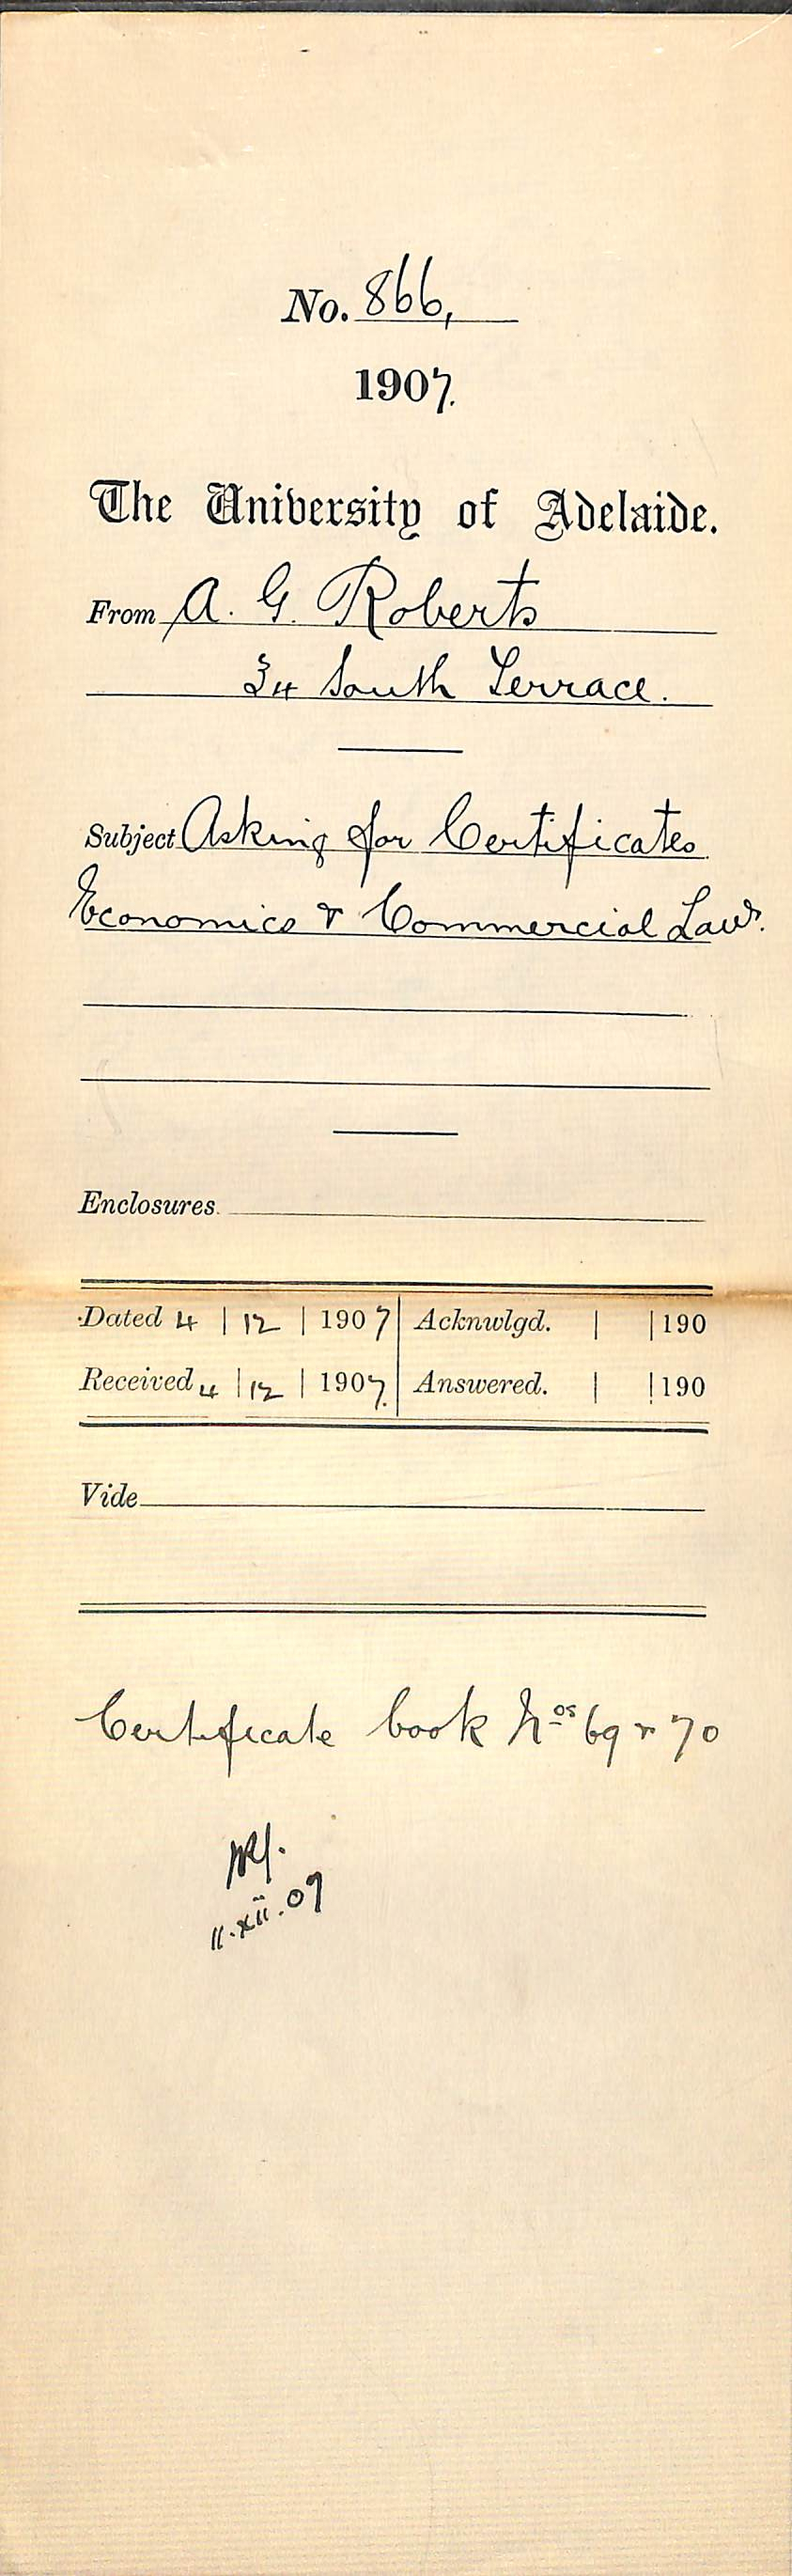 No. 866,
1907.
The University of Adelaide.
From A. G. Roberts
34 South Terrace.
Subject Asking for Certificates
Economics & Commercial Law.
Enclosures.
Dated 4 | 12 | 1907 | Acknwlgd. | | 190
Received 4 | 12 | 1907. | Answered. | | 190
Vide
Certificate book Nos 69 & 70
11.xii.07